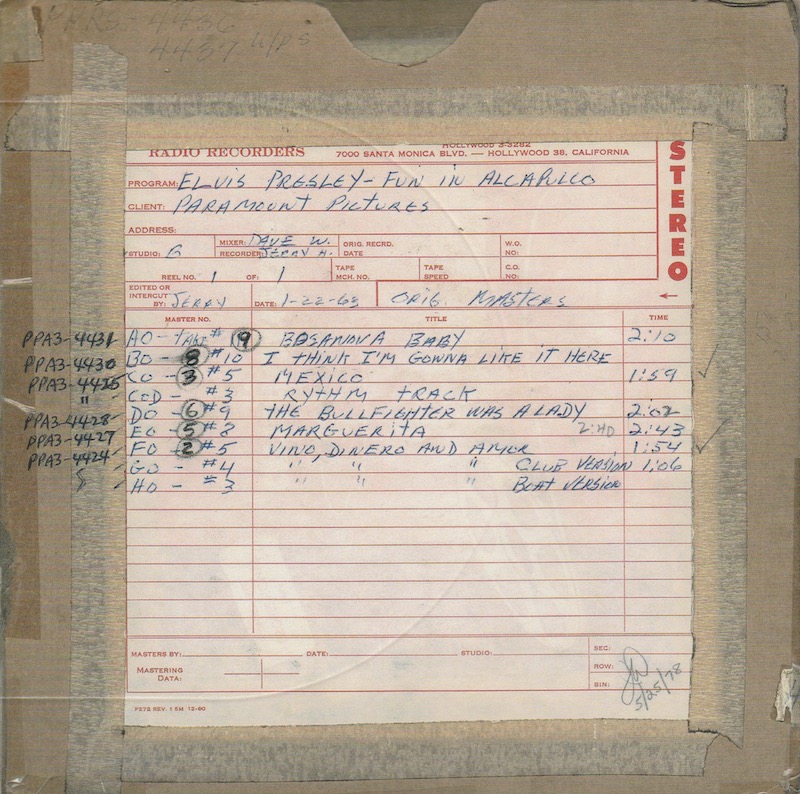 PPA3-4436
4437 W/PS
HOLLYWOOD 3-3282
RADIO RECORDERS 7000 SANTA MONICA BLVD. — HOLLYWOOD 38, CALIFORNIA
STEREO
PROGRAM: ELVIS PRESLEY - FUN IN ALCAPULCO
CLIENT: PARAMOUNT PICTURES
ADDRESS:
STUDIO: G MIXER: DAVE W. RECORDER: JERRY H. ORIG. RECRD. DATE W.O. NO:
REEL NO. 1 OF: 1 TAPE MCH. NO. TAPE SPEED C.O. NO:
EDITED OR INTERCUT BY: JERRY DATE: 1-22-63 ORIG. MASTERS
MASTER NO. TITLE TIME
PPA3-4431 AO - TAKE # 9 BOSANOVA BABY 2:10
PPA3-4430 BO - 8 #10 I THINK I'M GONNA LIKE IT HERE
PPA3-4425 CO - 3 #5 MEXICO 1:59
" COD - #3 RYTHM TRACK
PPA3-4428 DO - 6 #9 THE BULLFIGHTER WAS A LADY 2:02
PPA3-4427 EO - 5 #8 MARGUERITA 2:40 2:43
PPA3-4424 FO - 2 #5 VINO, DINERO AND AMOR 1:54
GO - #4 " " " CLUB VERSION 1:06
HO - #3 " " " BOAT VERSION
MASTERS BY: DATE: STUDIO: SEC:
MASTERING DATA: ROW:
BIN:
5/25/78
F272 REV. 1 5M 12-60